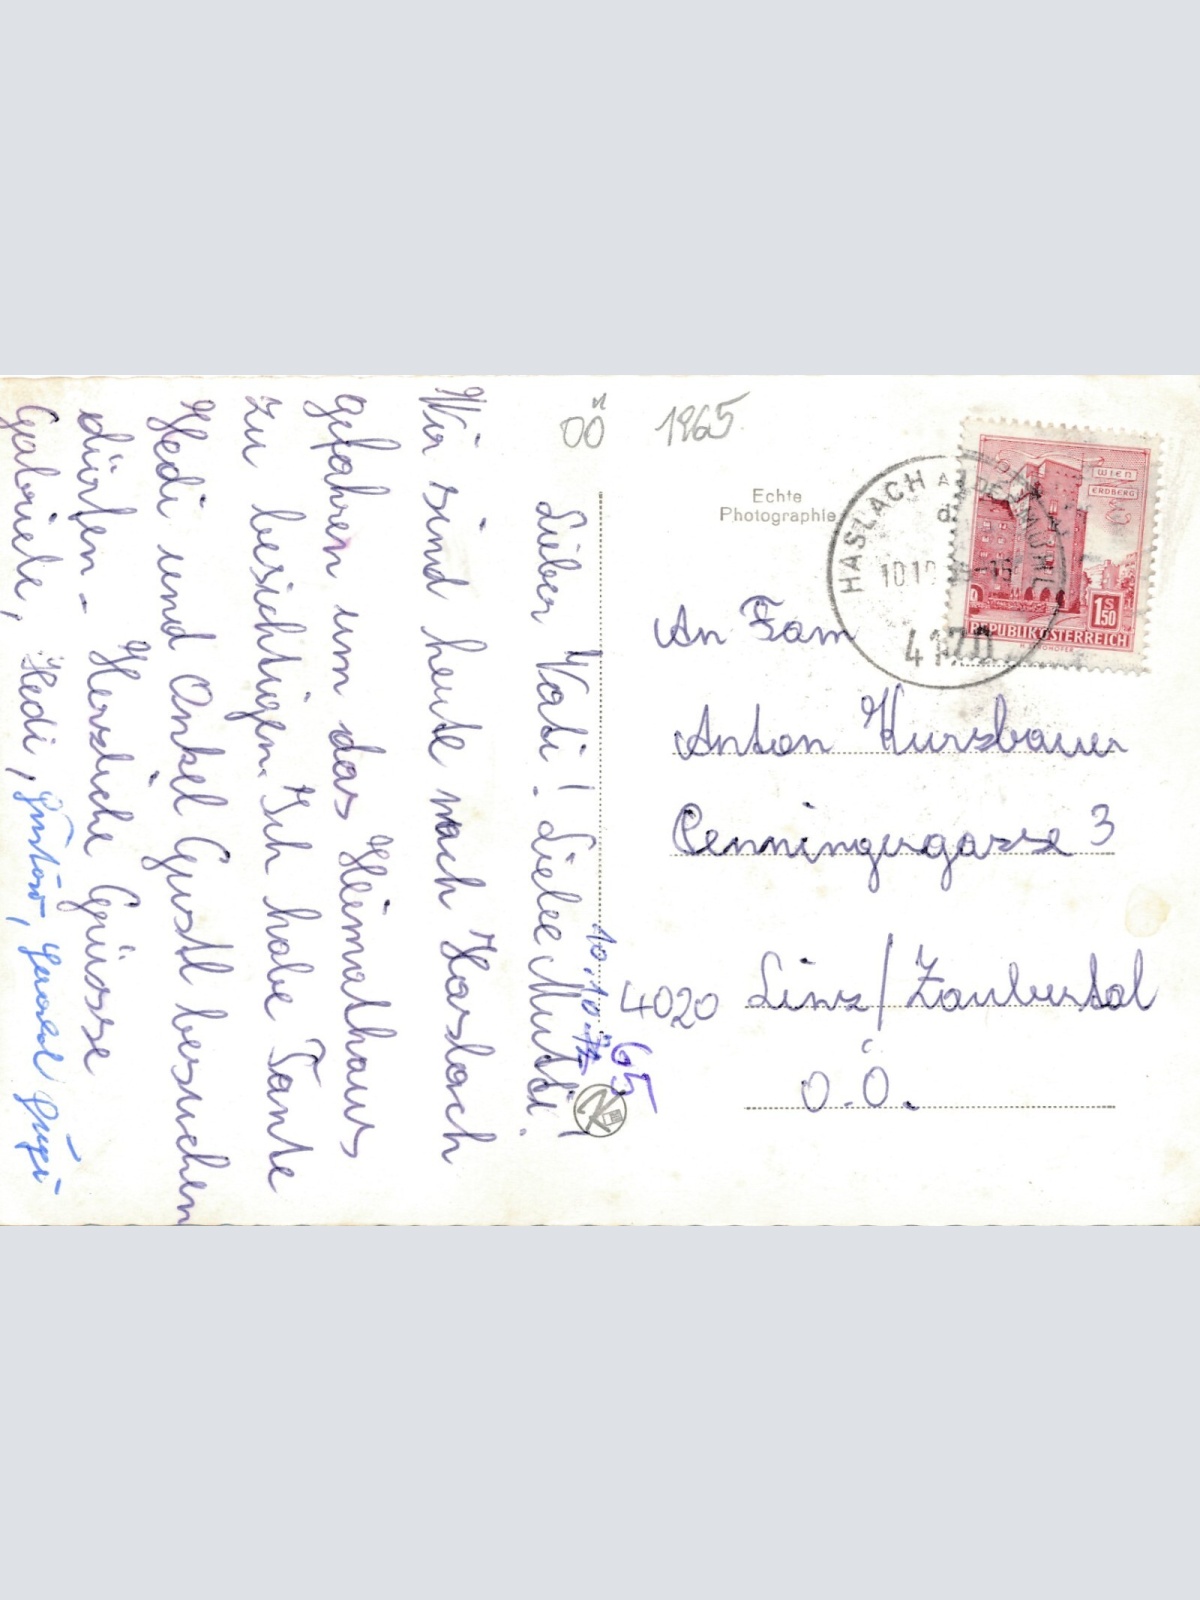 OÖ 1965
Lieber Vati! Liebe Mutti!
Wir sind heute nach Haslach
gefahren um das Heimathaus
zu besichtigen. Ich habe Tante
Hedi und Onkel Gustl besuchen
dürfen - Herzliche Grüsse
Gabriele, Hedi,
10.10.
65
Echte
Photographie
HASLACH AN DER MÜHL
10.10
4170
WIEN
ERDBERG
1 S 50
REPUBLIK ÖSTERREICH
An Fam
Anton Kurzbauer
Penningergasse 3
4020 Linz/Zaubertal
O.Ö.
K